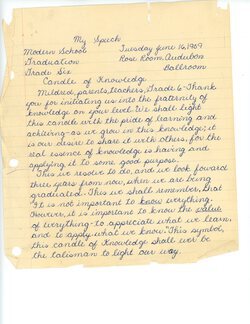 My Speech
Modern School Tuesday June 16, 1969
Graduation Rose Room, Audubon
Grade Six Ballroom
Candle of Knowledge
Mildred, parents, teachers, Grade 6 - Thank
you for initiating us into the fraternity of
knowledge on your level. We shall light
this candle with the pride of learning and
achieving - as we grow in this knowledge; it
is our desire to share it with others, for the
real essence of knowledge is having and
applying it to some good purpose.
This we resolve to do, and we look foward
three years from now, when we are being
graduated. This we shall remember, that
"It is not important to know everything.
However, it is important to know the value
of everything - to appreciate what we learn,
and to apply what we know." This symbol,
this candle of Knowledge shall ever be
the talisman to light our way.